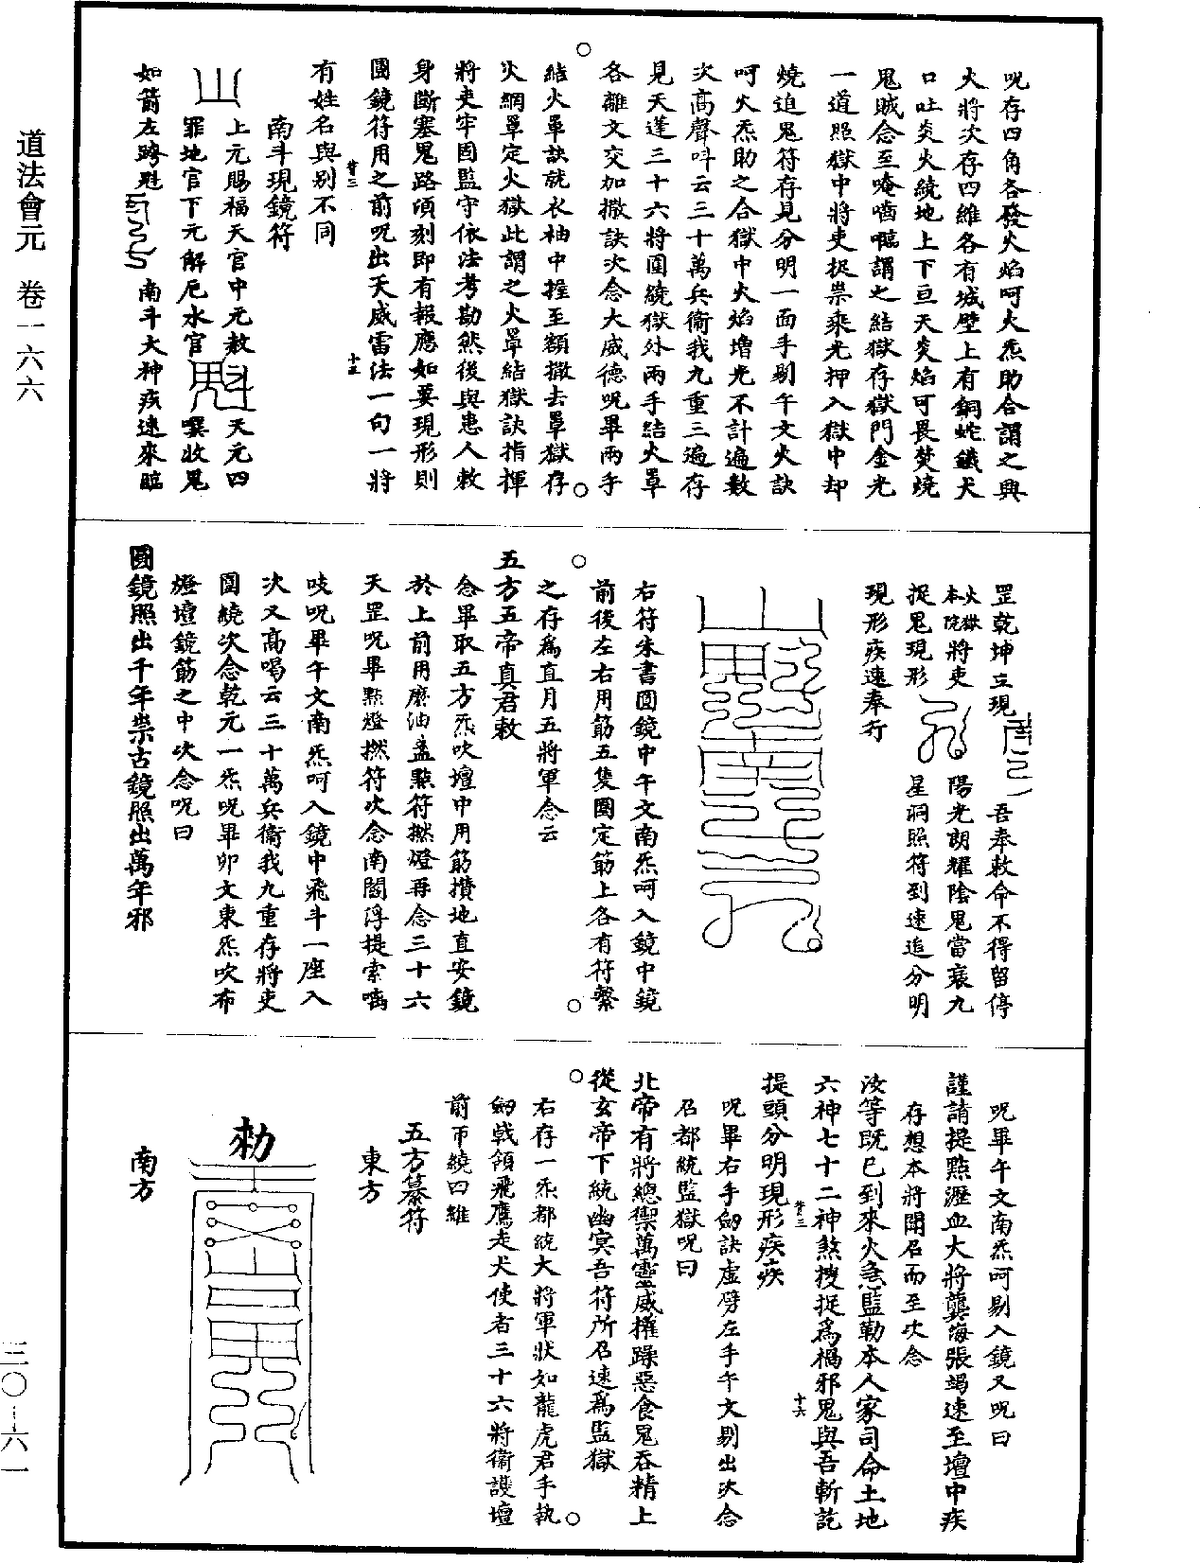 道法會元　卷一六六
三〇—六一
呪存四角各發火焰呵火炁助合謂之興
火將次存四維各有城壁上有銅蛇鐵犬
口吐炎火繞地上下亘天炎焰可畏焚燒
鬼賊念至唵嚙臨謂之結獄存獄門金光
一道照獄中將吏捉祟乘光押入獄中却
燒追鬼符存見分明一面手剔午文火訣
呵火炁助之合獄中火焰增光不計遍數
次高聲呌云三十萬兵衛我九重三遍存
見天蓬三十六將圍繞獄外兩手結火罩
各離文交加撒訣次念大威德呪畢兩手
結火罩訣就衣袖中握至額撒去罩獄存
火網罩定火獄此謂之火罩結獄訣指揮
將吏牢固監守依法考勘然後與患人敕
身斷塞鬼路頃刻即有報應如要現形則
圓鏡符用之前呪出天威雷法一句一將
有姓名與别不同
南斗現鏡符
上元賜福天官中元赦
天元四
罪地官下元解厄水官
噀收鬼
如箭左跨魁
南斗大神疾速來臨
罡乾坤立現
吾奉敕命不得留停
火獄本院將吏
陽光朗耀陰鬼當衰九
捉鬼現形
星洞照符到速追分明
現形疾速奉行
右符朱書圓鏡中午文南炁呵入鏡中鏡
前後左右用筯五隻圍定筯上各有符繫
之存爲直月五將軍念云
五方五帝真君敕
念畢取五方炁吹壇中用筯攢地直安鏡
於上前用麽油盞點符撚燈再念三十六
天罡呪畢點燈撚符次念南閻浮提索嘀
吱呪畢午文南炁呵入鏡中飛斗一座入
次又高喝云三十萬兵衛我九重存將吏
圍繞次念乾元一炁呪畢卯文東炁吹布
燈壇鏡筯之中次念呪曰
圓鏡照出千年祟古鏡照出萬年邪
呪畢午文南炁呵剔入鏡又呪曰
謹請提點瀝血大將龔海張竭速至壇中疾
存想本將聞召而至次念
汝等既已到來火急監勒本人家司命土地
六神七十二神煞搜捉爲禍邪鬼與吾斬訖
提頭分明現形疾疾
呪畢右手劒訣虚劈左手午文剔出次念
召都統監獄呪曰
北帝有將總禦萬靈威權躁惡食鬼吞精上
從玄帝下統幽冥吾符所召速爲監獄
右存一炁都統大將軍狀如龍虎君手執
劒戟領飛鷹走犬使者三十六將衛護壇
前帀繞四維
五方纂符
東方
勑
南方